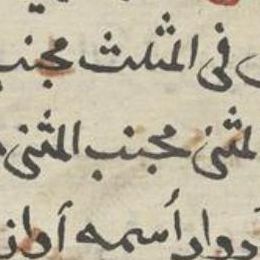 فى المثلث مجنب
لمثنى مجنب المثنى
دوار أسمه أواز